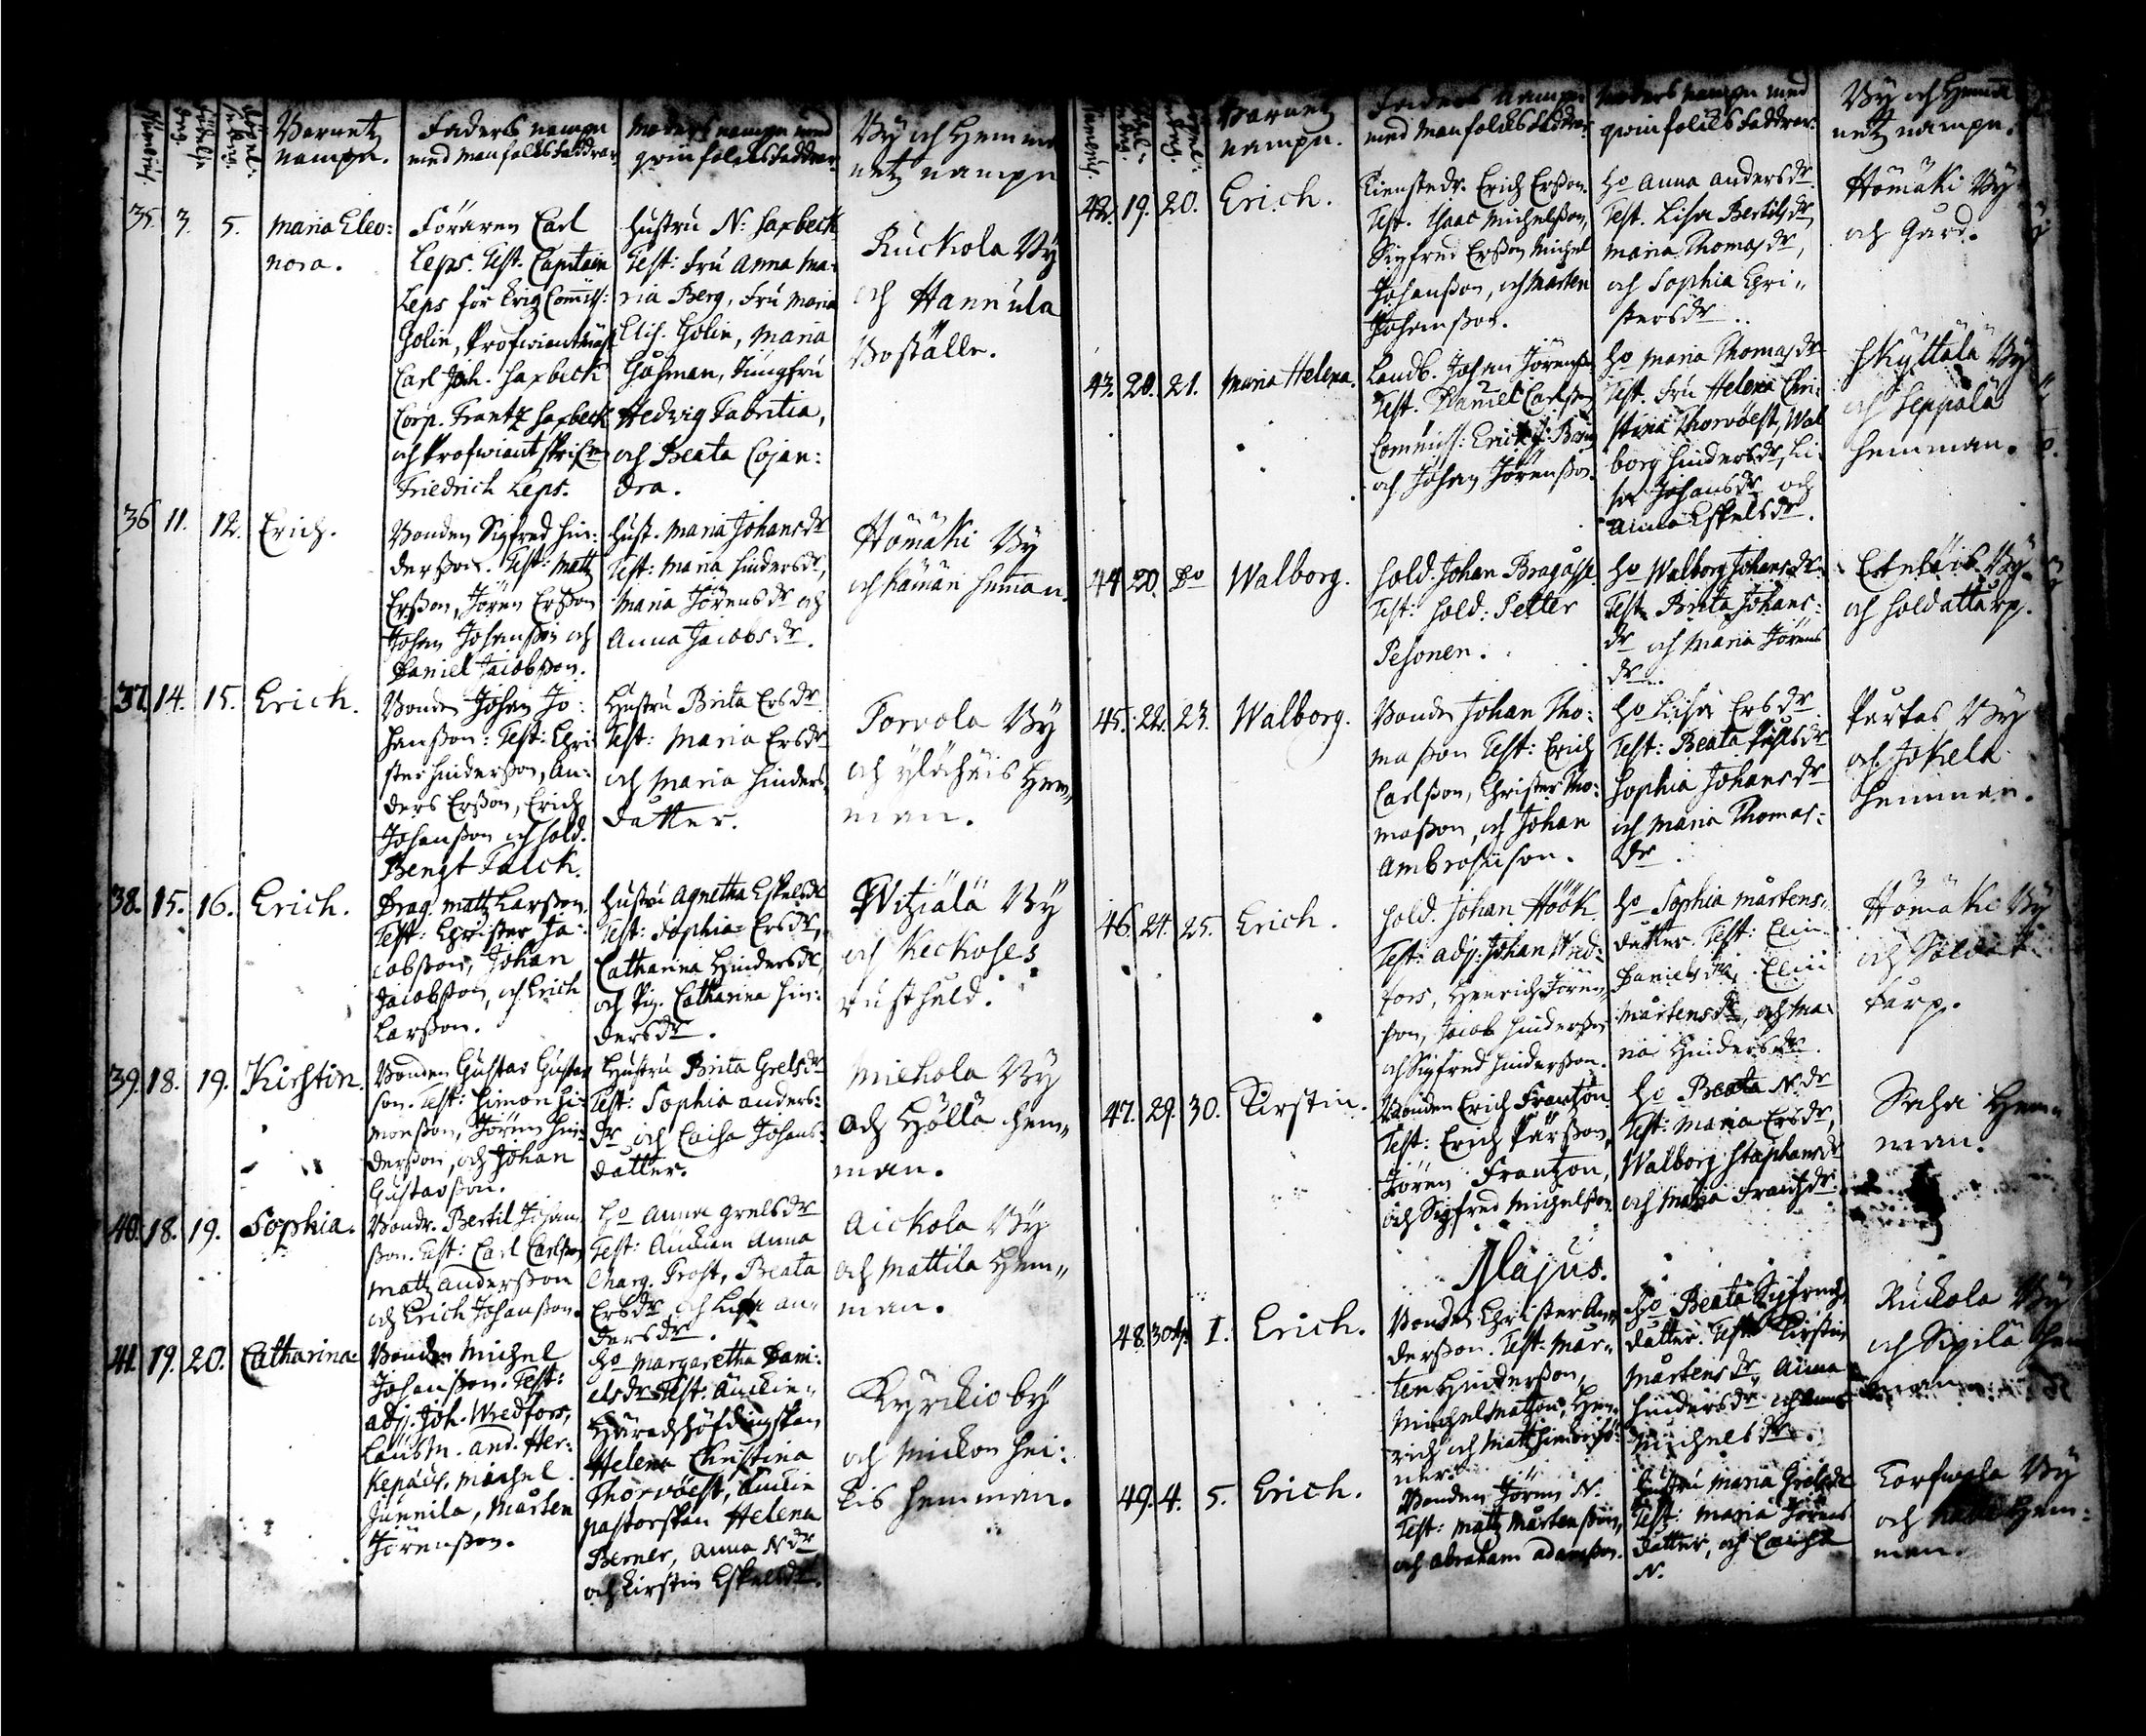 Barnetz
nampn.
Faders nampn
med manfolcks Faddrar
Moders nampn med
qwinfolcks Faddrar
By och Hemma
netz nampn
35. 3. 5. Maria Eleo:
nora.
Föraren Carl
Leps. Test. Capitain
Leps för
Golin,
Carl Joh. Saxbeck
Corp. Frantz Saxbeck
och
Friedrich Leps.
Hustru N: Saxbeck
Test: Fru Anna Ma:
ria Berg, Fru Maria
Elis. Golin, Maria
Jungfru
Hedvig Fabritia,
och Beata Cajan:
dra.
Ruckola By
och Hannula
Boställe.
36 11. 12. Erich.
Bonden Sigfred Hin:
dersson. Test: Matz
Ersson, Jören Ersson
Johan Johansson och
Daniel Jacobsson.
Hust. Maria Johansdr
Test: Maria Hindersdr,
Maria Jörensdr och
Anna Jacobsdr.
Hömäki By
och hemman.
37. 14. 15. Erich.
Bonden Johan Jo:
hansson: Test: Chri
ster Hindersson, An:
ders Ersson, Erich
Johansson och Sold.
Bengt Falck.
Hustru Brita Ersdr
Test: Maria Ersdr
och Maria Hinders
datter.
Porvola By
och Hem„
man.
38. 15. 16. Erich.
Drag. Matz Larsson.
Test: Christer Ja:
cobsson, Johan
Jacobsson, och Erich
Larsson.
Hustru Agnetha Eskelsdr
Test: Sophia Ersdr,
Catharina Hindersdr,
och Pig. Catharina Hin:
dersdr.
Witziälä By
och Keckoles
rusthald.
39. 18. 19. Kirstin.
Bonden Gustav Gustav
son. Test: Simon Si:
monsson, Jören Hin:
dersson, och Johan
Gustavsson.
Hustru Brita Grelsdr
Test: Sophia Anders:
dr och Caisa Johans
datter.
Miehola By
och Hölla hem„
man.
40. 18. 19. Sophia.
Bondr. Bertil Johan
sson. Test: Carl Carlsson
Matz Andersson
och Erich Johansson.
Ho Anna Grelsdr
Test: Anna
Marg. Frost, Beata
Ersdr och Lisa An„
dersdr.
Aickola By
och Mattila Hem„
man.
41. 19. 20. Catharina.
Bonden Michel
Johansson. Test:
Adj. Joh. Wredfors,
And. Her:
Kepäus, Michel
Junnila, Mårten
Jörensson.
Ho Margaretha Dani:
elsdr Test:
Häradshöfdingskan
Helena Christina
Thorvöest,
Pastorskan Helena
Berner, Anna N.dr
och Kirstin Eskelsdr.
Kyrckio by
och Mickon hei:
kis hemman.
Barnetz
nampn.
Faders nampn
med manfolcks Faddrar
Moders nampn med
qwinfolcks Faddrar.
By och Hemma
netz nampn.
42. 19. 20. Erich.
Tienstedr. Erich Ersson.
Test. Isaac Michelsson,
Sigfred Ersson Michel
Johansson, och Mårten
Johansson.
Ho Anna Andersdr
Test. Lisa Bertilsdr,
Maria Thomasdr,
och Sophia Chri„
stersdr.
Hömäki By
och Gård.
43. 20. 21. Maria Helena.
Landb. Johan Jörensson
Test. Daniel Carlsson
Commiss: Erick
och Johan Jörensson.
Ho Maria Thomasdr
Test. Fru Helena Chri:
stina Thorvöest, Wal
borg Hindersdr, Li:
sa Johansdr och
Anna Eskelsdr.
Skyttälä By
och Seppälä
hemman.
44 20. Do Walborg.
Sold. Johan
Test: Sold: Petter
Pesonen.
Ho Walborg Johansdr
Test. Brita Johans:
dr och Maria Jörens
dr.
By
och Soldattarp.
45. 22. 23. Walborg.
Bonden Johan Tho:
masson Test: Erich
Carlsson, Christer Tho:
masson, och Johan
Ambrosiison.
Ho Lisa Ersdr
Test: Beata Påhlsdr
Sophia Johansdr
och Maria Thomas:
dr.
Partas By
och Jokela
hemman.
46. 24. 25. Erich.
Sold. Johan Höök
Test: Adj: Johan Wred:
fors, Henrich Jören„
sson, Jacob Hindersson
och Sigfred Hindersson.
Ho Sophia Mårtens„
datter. Test: Elin
Danielsdr, Elin
Mårtensdr, och Ma
ria Hindersdr.
Hömäki By
och Soldat
tarp.
47. 29. 30. Kirstin.
Bonden Erich Frantzon.
Test: Erich Pärsson,
Jören Frantzon,
och Sigfred Michelsson
Ho Beata N.dr
Test: Maria Ersdr,
Walborg Staphansdr
och Maria Frantzdr.
Hem„
man.
Majus.
48. 30 Ap. 1. Erich.
Bonden Christer An„
dersson. Test: Mår„
ten Hindersson,
Michel Matzon, Hen
rich och Matz
Ho Beata Sigfreds
datter. Test: Kirstin
Mårtensdr, Anna
Hindersdr och Anna
Michelsdr.
Ruckola By
och Sipilä hem
man.
49. 4. 5. Erich.
Bonden Jören N.
Test: Matz Mårtensson,
och Abraham Adamsson.
Hustru Maria Grelsdr
Test: Maria Jörens
datter, och Caicha
N.
By
och hem:
man.